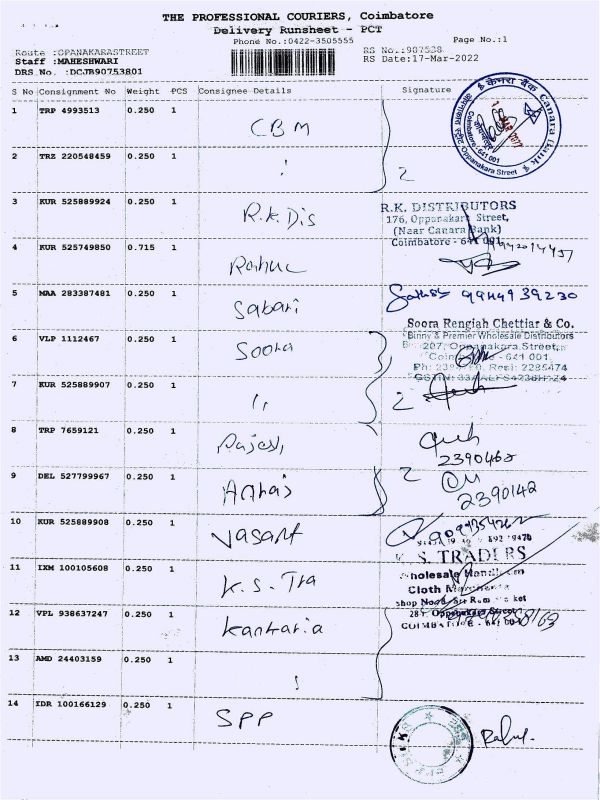 THE PROFESSIONAL COURIERS, Coimbatore
Delivery Runsheet - PCT
Phone No.:0422-3505555
Page No.:1
Route :OPANAKARASTREET
RS No.:907538
Staff :MAHESHWARI
RS Date:17-Mar-2022
DRS No. :DCJB90753801
S No Consignment No Weight PCS Consignee Details Signature
1 TRP 4993513 0.250 1 CBM
केनरा बैंक Canara Bank
Coimbatore-641 001
Oppanakara Street
2 TRZ 220548459 0.250 1 "
2
3 KUR 525889924 0.250 1 R.K.Dis
R.K. DISTRIBUTORS
176, Oppanakara Street,
(Naar Canara Bank)
Coimbatore - 641 001
4 KUR 525749850 0.715 1 Rahul
5 MAA 283387481 0.250 1 Sabari
Sathish 9944939230
6 VLP 1112467 0.250 1 Soora
Soora Rengiah Chettiar & Co.
Binny & Premier Wholesale Distributors
207, Oppanakara Street,
641 001
2285474
7 KUR 525889907 0.250 1 "
2
8 TRP 7659121 0.250 1 Rajesh
2390462
9 DEL 527799967 0.250 1
2
2390142
10 KUR 525889908 0.250 1 Vasant
11 IXM 100105608 0.250 1 K.S. Tra
S. TRADERS
Cloth
12 VPL 938637247 0.250 1 Kankaria
13 AMD 24403159 0.250 1 "
14 IDR 100166129 0.250 1 SPP
Rahul.